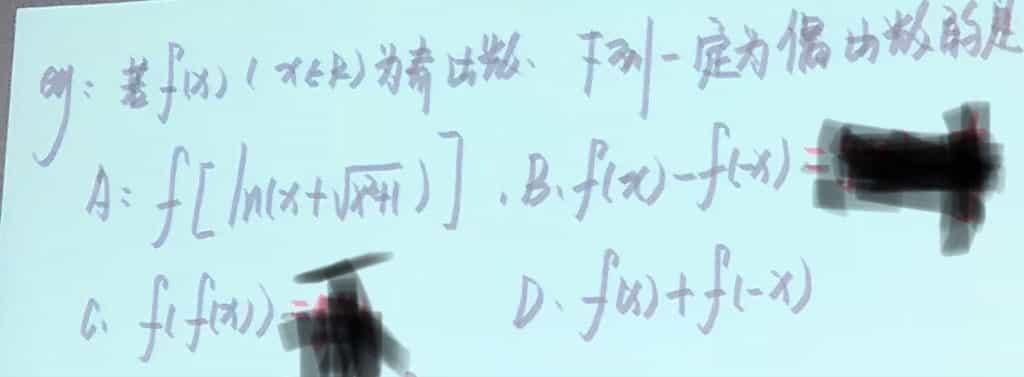 eg: 若f(x) (x∈R)为奇函数、下列一定为偶函数的是
A: f[ln(x+√x²+1)]. B、f(x)-f(-x)=
C、f(f(x))= D、f(x)+f(-x)